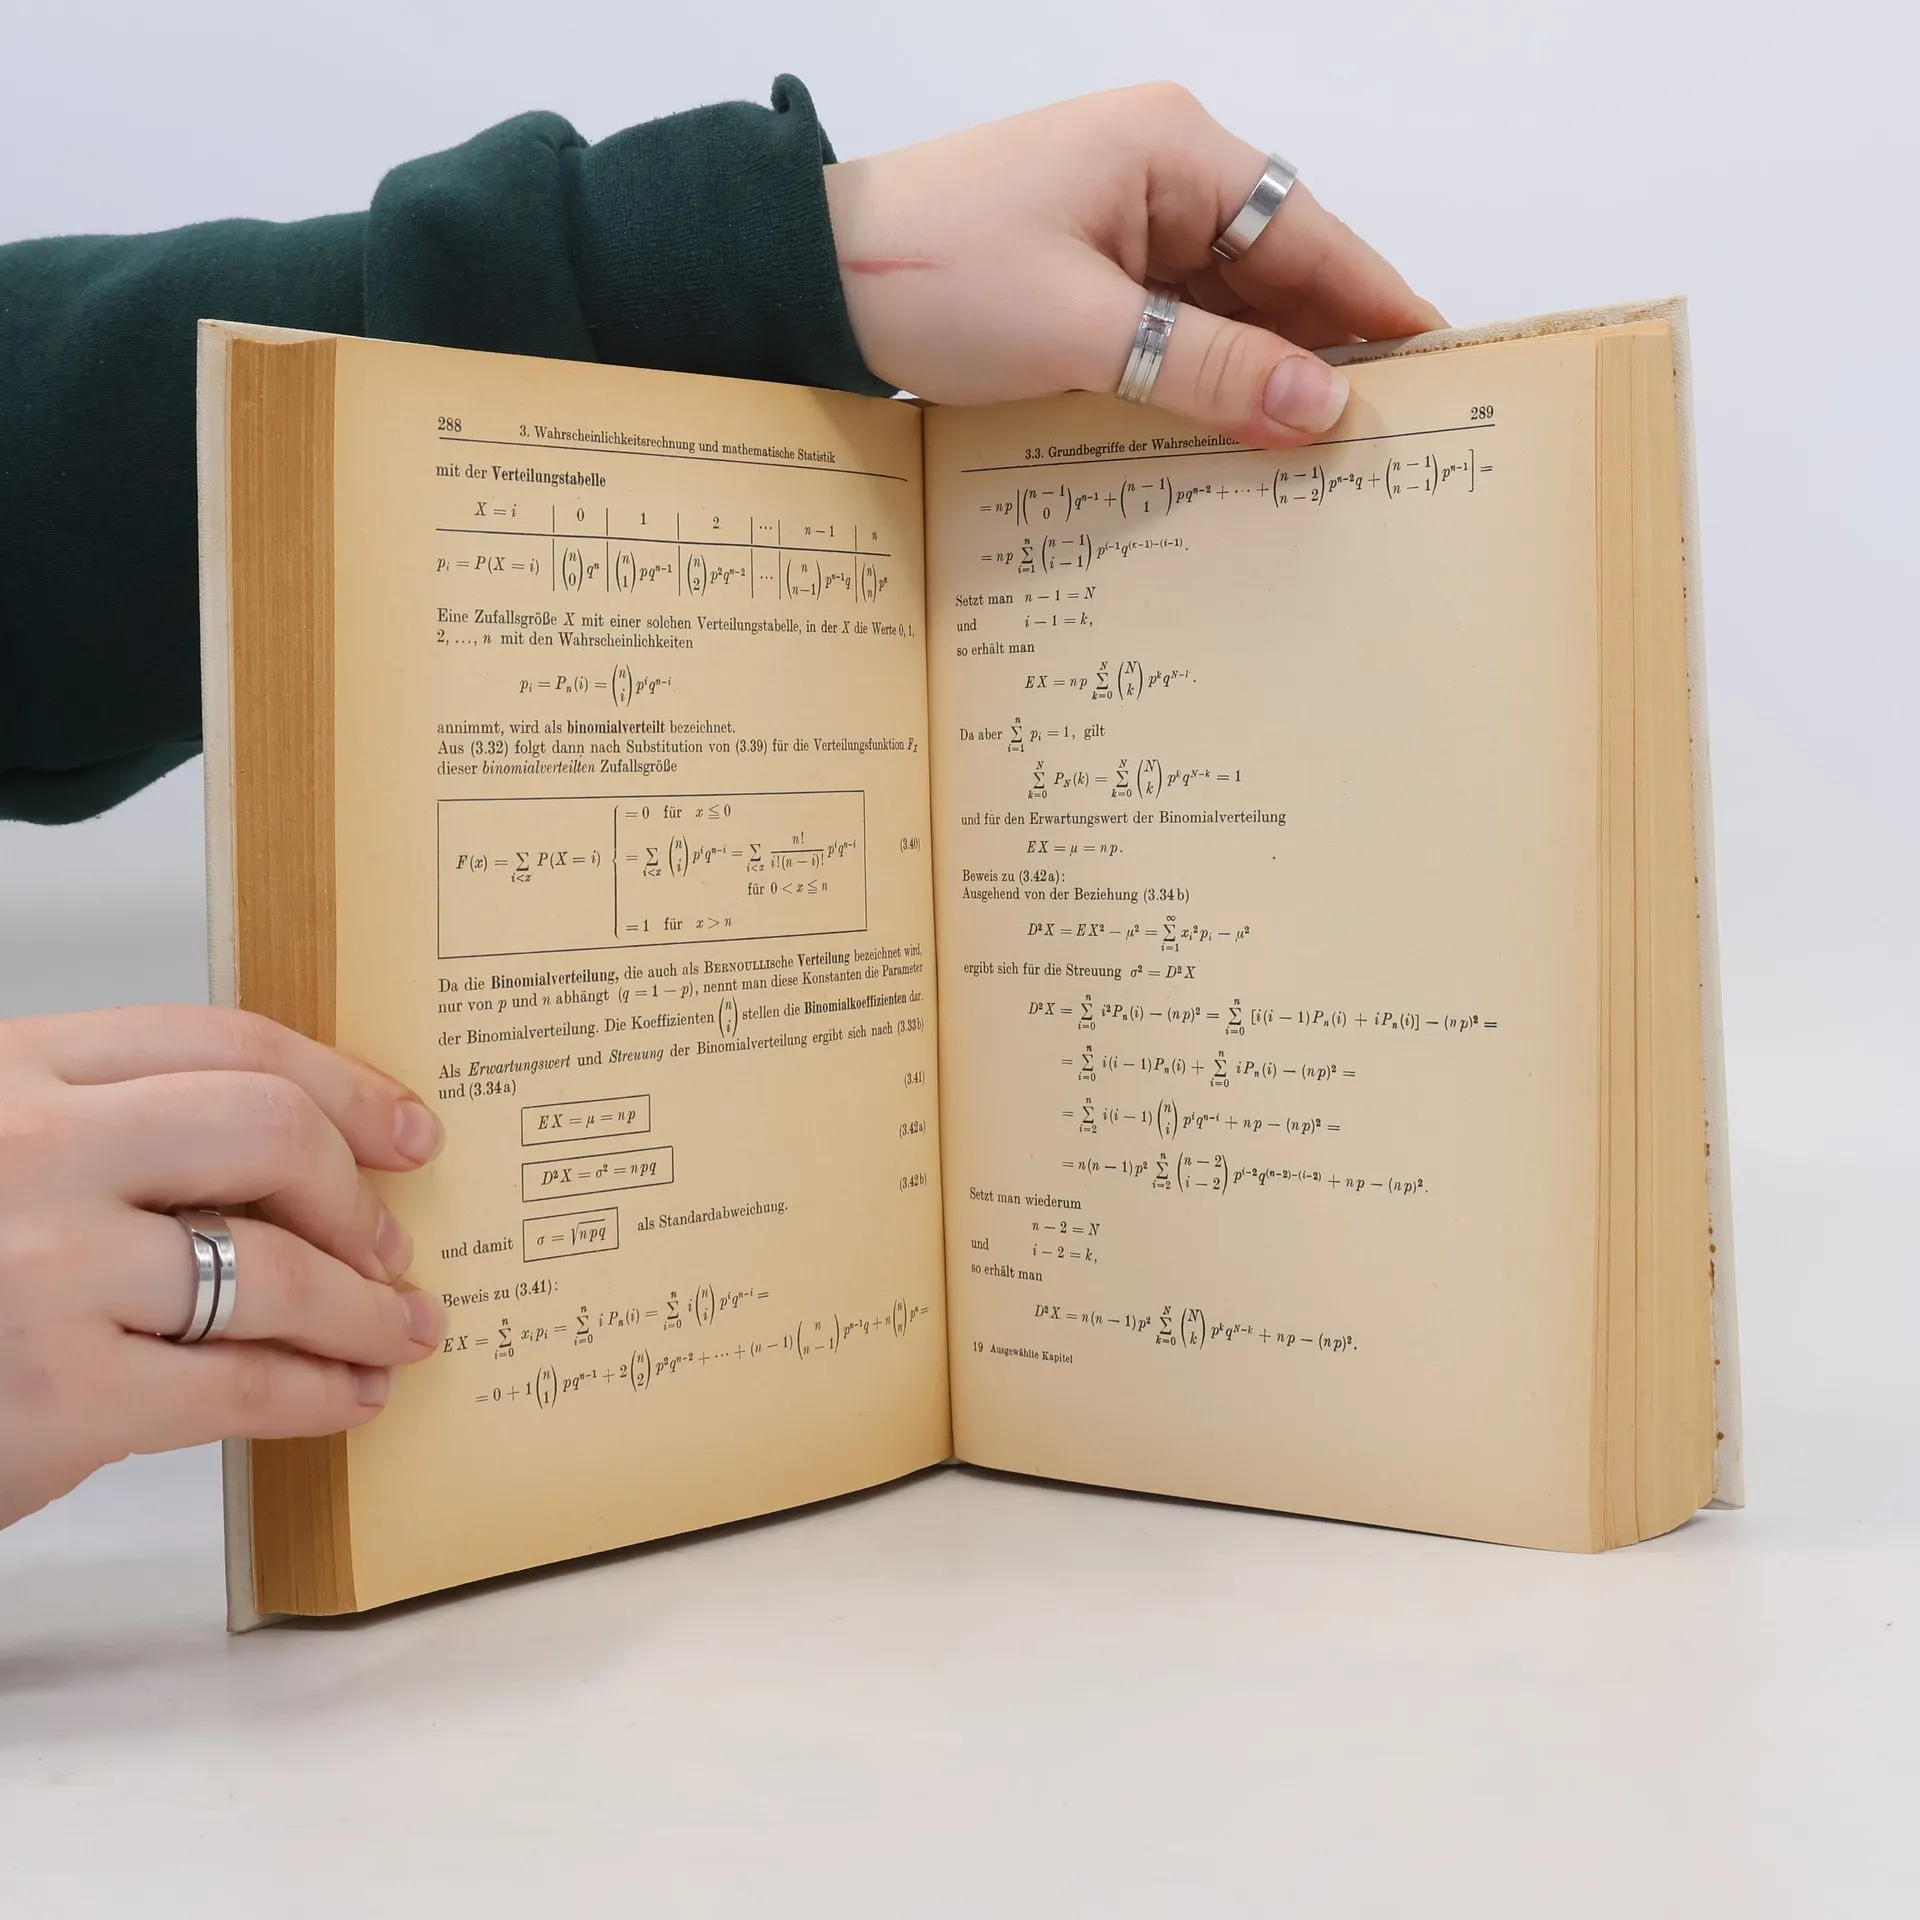 288
3. Wahrscheinlichkeitsrechnung und mathematische Statistik
mit der Verteilungstabelle
X = i | 0 | 1 | 2 | ... | n − 1 | n
p_i = P(X = i) | (n über 0) qⁿ | (n über 1) pqⁿ⁻¹ | (n über 2) p²qⁿ⁻² | ... | (n über n−1) pⁿ⁻¹q | (n über n) pⁿ
Eine Zufallsgröße X mit einer solchen Verteilungstabelle, in der X die Werte 0, 1,
2, ..., n mit den Wahrscheinlichkeiten
p_i = P_n(i) = \binom{n}{i} p^i q^{n−i}
annimmt, wird als binomialverteilt bezeichnet.
Aus (3.32) folgt dann nach Substitution von (3.39) für die Verteilungsfunktion F_X
dieser binomialverteilten Zufallsgröße
= 0 für x ≦ 0
F(x) = ∑_{i<x} P(X = i) { = ∑_{i<x} \binom{n}{i} p^i q^{n−i} = ∑_{i<x} \frac{n!}{i!(n − i)!} p^i q^{n−i} (3.40)
für 0 < x ≦ n
= 1 für x > n
Da die Binomialverteilung, die auch als BERNOULLIsche Verteilung bezeichnet wird,
nur von p und n abhängt (q = 1 − p), nennt man diese Konstanten die Parameter
der Binomialverteilung. Die Koeffizienten \binom{n}{i} stellen die Binomialkoeffizienten dar.
Als Erwartungswert und Streuung der Binomialverteilung ergibt sich nach (3.33b)
und (3.34a)
EX = μ = np (3.41)
D²X = σ² = npq (3.42a)
und damit σ = √npq als Standardabweichung. (3.42b)
Beweis zu (3.41):
EX = ∑_{i=0}^{n} x_i p_i = ∑_{i=0}^{n} i P_n(i) = ∑_{i=0}^{n} i \binom{n}{i} p^i q^{n−i} =
= 0 + 1 \binom{n}{1} pq^{n−1} + 2 \binom{n}{2} p²q^{n−2} + ··· + (n − 1) \binom{n}{n − 1} p^{n−1}q + n \binom{n}{n} p^n =
289
3.3. Grundbegriffe der
= np [\binom{n − 1}{0} q^{n−1} + \binom{n − 1}{1} pq^{n−2} + ··· + \binom{n − 1}{n − 2} p^{n−2}q + \binom{n − 1}{n − 1} p^{n−1}] =
= np ∑_{i=1}^{n} \binom{n − 1}{i − 1} p^{i−1} q^{(n−1)−(i−1)}.
Setzt man n − 1 = N
und i − 1 = k,
so erhält man
EX = np ∑_{k=0}^{N} \binom{N}{k} p^k q^{N−k}.
Da aber ∑_{i=1}^{n} p_i = 1, gilt
∑_{k=0}^{N} P_N(k) = ∑_{k=0}^{N} \binom{N}{k} p^k q^{N−k} = 1
und für den Erwartungswert der Binomialverteilung
EX = μ = np.
Beweis zu (3.42a):
Ausgehend von der Beziehung (3.34b)
D²X = EX² − μ² = ∑_{i=1}^{∞} x_i² p_i − μ²
ergibt sich für die Streuung σ² = D²X
D²X = ∑_{i=0}^{n} i²P_n(i) − (np)² = ∑_{i=0}^{n} [i(i − 1)P_n(i) + iP_n(i)] − (np)² =
= ∑_{i=0}^{n} i(i − 1)P_n(i) + ∑_{i=0}^{n} iP_n(i) − (np)² =
= ∑_{i=2}^{n} i(i − 1) \binom{n}{i} p^i q^{n−i} + np − (np)² =
= n(n − 1)p² ∑_{i=2}^{n} \binom{n − 2}{i − 2} p^{i−2} q^{(n−2)−(i−2)} + np − (np)².
Setzt man wiederum
n − 2 = N
und i − 2 = k,
so erhält man
D²X = n(n − 1)p² ∑_{k=0}^{N} \binom{N}{k} p^k q^{N−k} + np − (np)².
19 Ausgewählte Kapitel